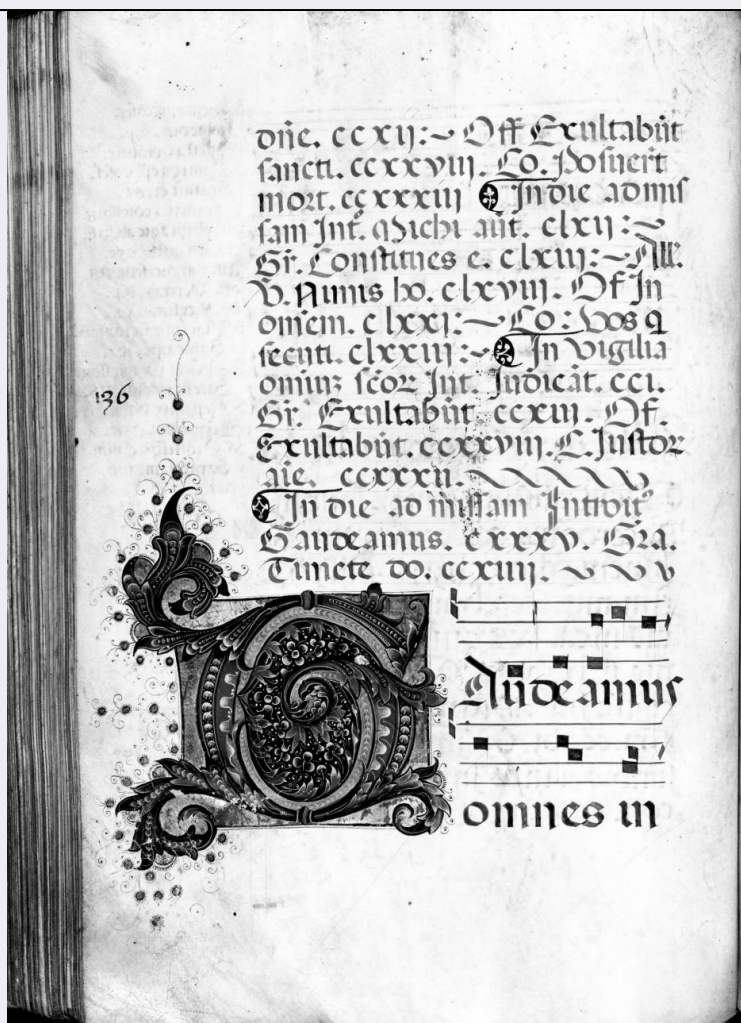 dn̄e. ccxij:~ Off Exultabūt
sancti. ccxxviii. Co. Posuer̄t
mort. ccxxxiii In die ad mis
sam Int. Michi aūt. clxij:~
Gr. Constitues e. clxiij:~ All'.
V. Nimis ho. clxviij. Of In
omēm. clxxj:~ Co: Vos q
secuti. clxxiij:~ In vigilia
omiuʒ scōꝝ Int. Iudicāt. cci.
136
Gr. Exultabūt. ccxiii. Of.
Exultabūt. ccxxviii. C. Iustoꝝ
aīe. ccxxxii.
In die ad missam Introit9
Gaudeamus. cxxxv. Gra.
Timete do. ccxiiij.
GAudeamus
omnes in